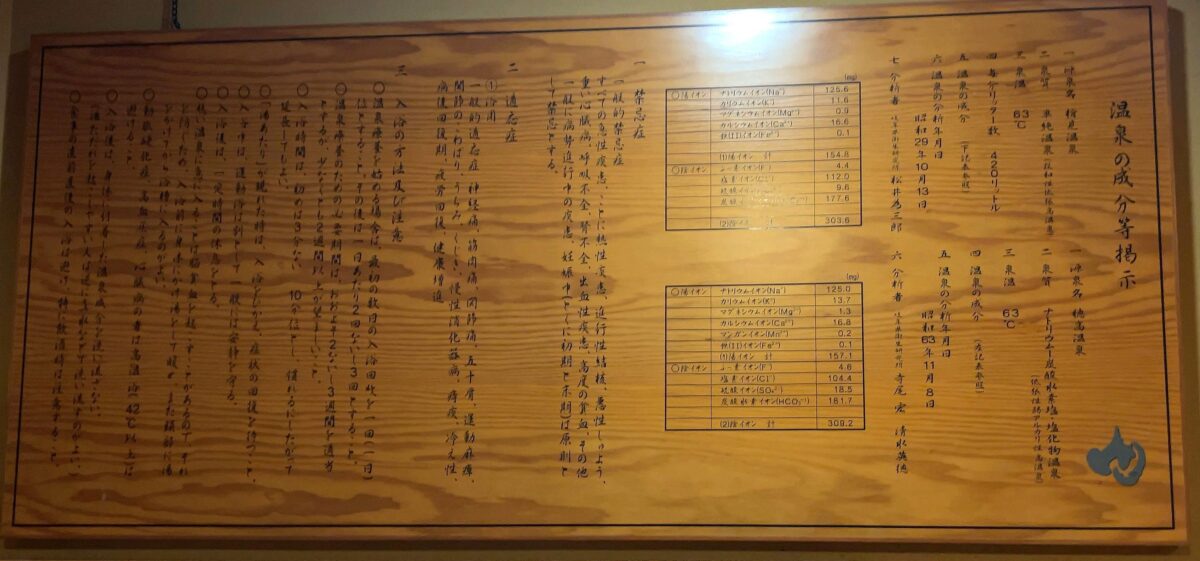 温泉の成分等掲示
一 源泉名 栃尾温泉
二 泉質 単純温泉(緩和性低張高温泉)
三 泉温 63℃
四 毎分リッター数 420リットル
五 温泉の成分 (下記表参照)
六 温泉の分析年月日
昭和29年10月13日
七 分析者 岐阜県衛生研究所 松井為三郎
一 源泉名 穂高温泉
二 泉質 ナトリウムー炭酸水素塩・塩化物温泉
(低張性弱アルカリ性高温泉)
三 泉温 63℃
四 温泉の成分 (左記表参照)
五 温泉の分析年月日
昭和63年11月8日
六 分析者 岐阜県衛生研究所 寺尾宏 清水英徳
(mg)
○陽イオン ナトリウムイオン(Na⁺) 125.6
カリウムイオン(K⁺) 11.6
マグネシウムイオン(Mg²⁺) 0.9
カルシウムイオン(Ca²⁺) 16.6
鉄(II)イオン(Fe²⁺) 0.1
(1)陽イオン 計 154.8
○陰イオン ふっ素イオン(F⁻) 4.4
塩素イオン(Cl⁻) 112.0
硫酸イオン 9.6
炭酸 177.6
(2)陰イオン 計 303.6
(mg)
○陽イオン ナトリウムイオン(Na⁺) 125.0
カリウムイオン(K⁺) 13.7
マグネシウムイオン(Mg²⁺) 1.3
カルシウムイオン(Ca²⁺) 16.8
マンガンイオン(Mn²⁺) 0.2
鉄(II)イオン(Fe²⁺) 0.1
(1)陽イオン 計 157.1
○陰イオン ふっ素イオン(F⁻) 4.6
塩素イオン(Cl⁻) 104.4
硫酸イオン(SO₄²⁻) 18.5
炭酸水素イオン(HCO₃⁻) 181.7
(2)陰イオン 計 309.2
一 禁忌症
一般的禁忌症
すべての急性疾患、ことに熱性疾患、進行性結核、悪性しゅよう、
重い心臓病、呼吸不全、腎不全、出血性疾患、高度の貧血、その他
一般に病勢進行中の疾患、妊娠中(とくに初期と末期)は原則と
して禁忌とする。
二 適応症
①浴用
一般的適応症 神経痛、筋肉痛、関節痛、五十肩、運動麻痺、
関節のこわばり、うちみ、くじき、慢性消化器病、痔疾、冷え性、
病後回復期、疲労回復、健康増進
三 入浴の方法及び注意
○温泉療養を始める場合は、最初の数日の入浴回数を一回(一日)
位とすること。その後は一日あたり2回ないし3回とすること。
○温泉療養のための必要期間は、おおよそ2ないし3週間を適当
とするが、少なくとも2週間以上が望しいこと。
○入浴時間は、初めは3分ないし10分位とし、慣れるにしたがって
延長してもよい。
○「湯あたり」が現れた時は、入浴をひかえ、症状の回復を待つこと。
○入浴中は、運動浴は別として一般には安静を守る。
○入浴後は、一定時間の休息をとる。
○熱い温泉に急に入るとき脳貧血を起こすことがあるので、それ
を防ぐため、入浴前に身体にかけ湯をして暖め、また頭部に湯
をかけてから浴槽に入るのがよい。
○動脈硬化症、高血圧症、心臓病の者は高温浴(42℃以上)は
避けること。
○入浴後は、身体に付着した温泉成分を洗い流さない。
(湯ただれを起こしやすい人は逆に真水などで洗い流すのがよい。)
○食事の直前直後の入浴は避け、特に飲酒時は注意すること。